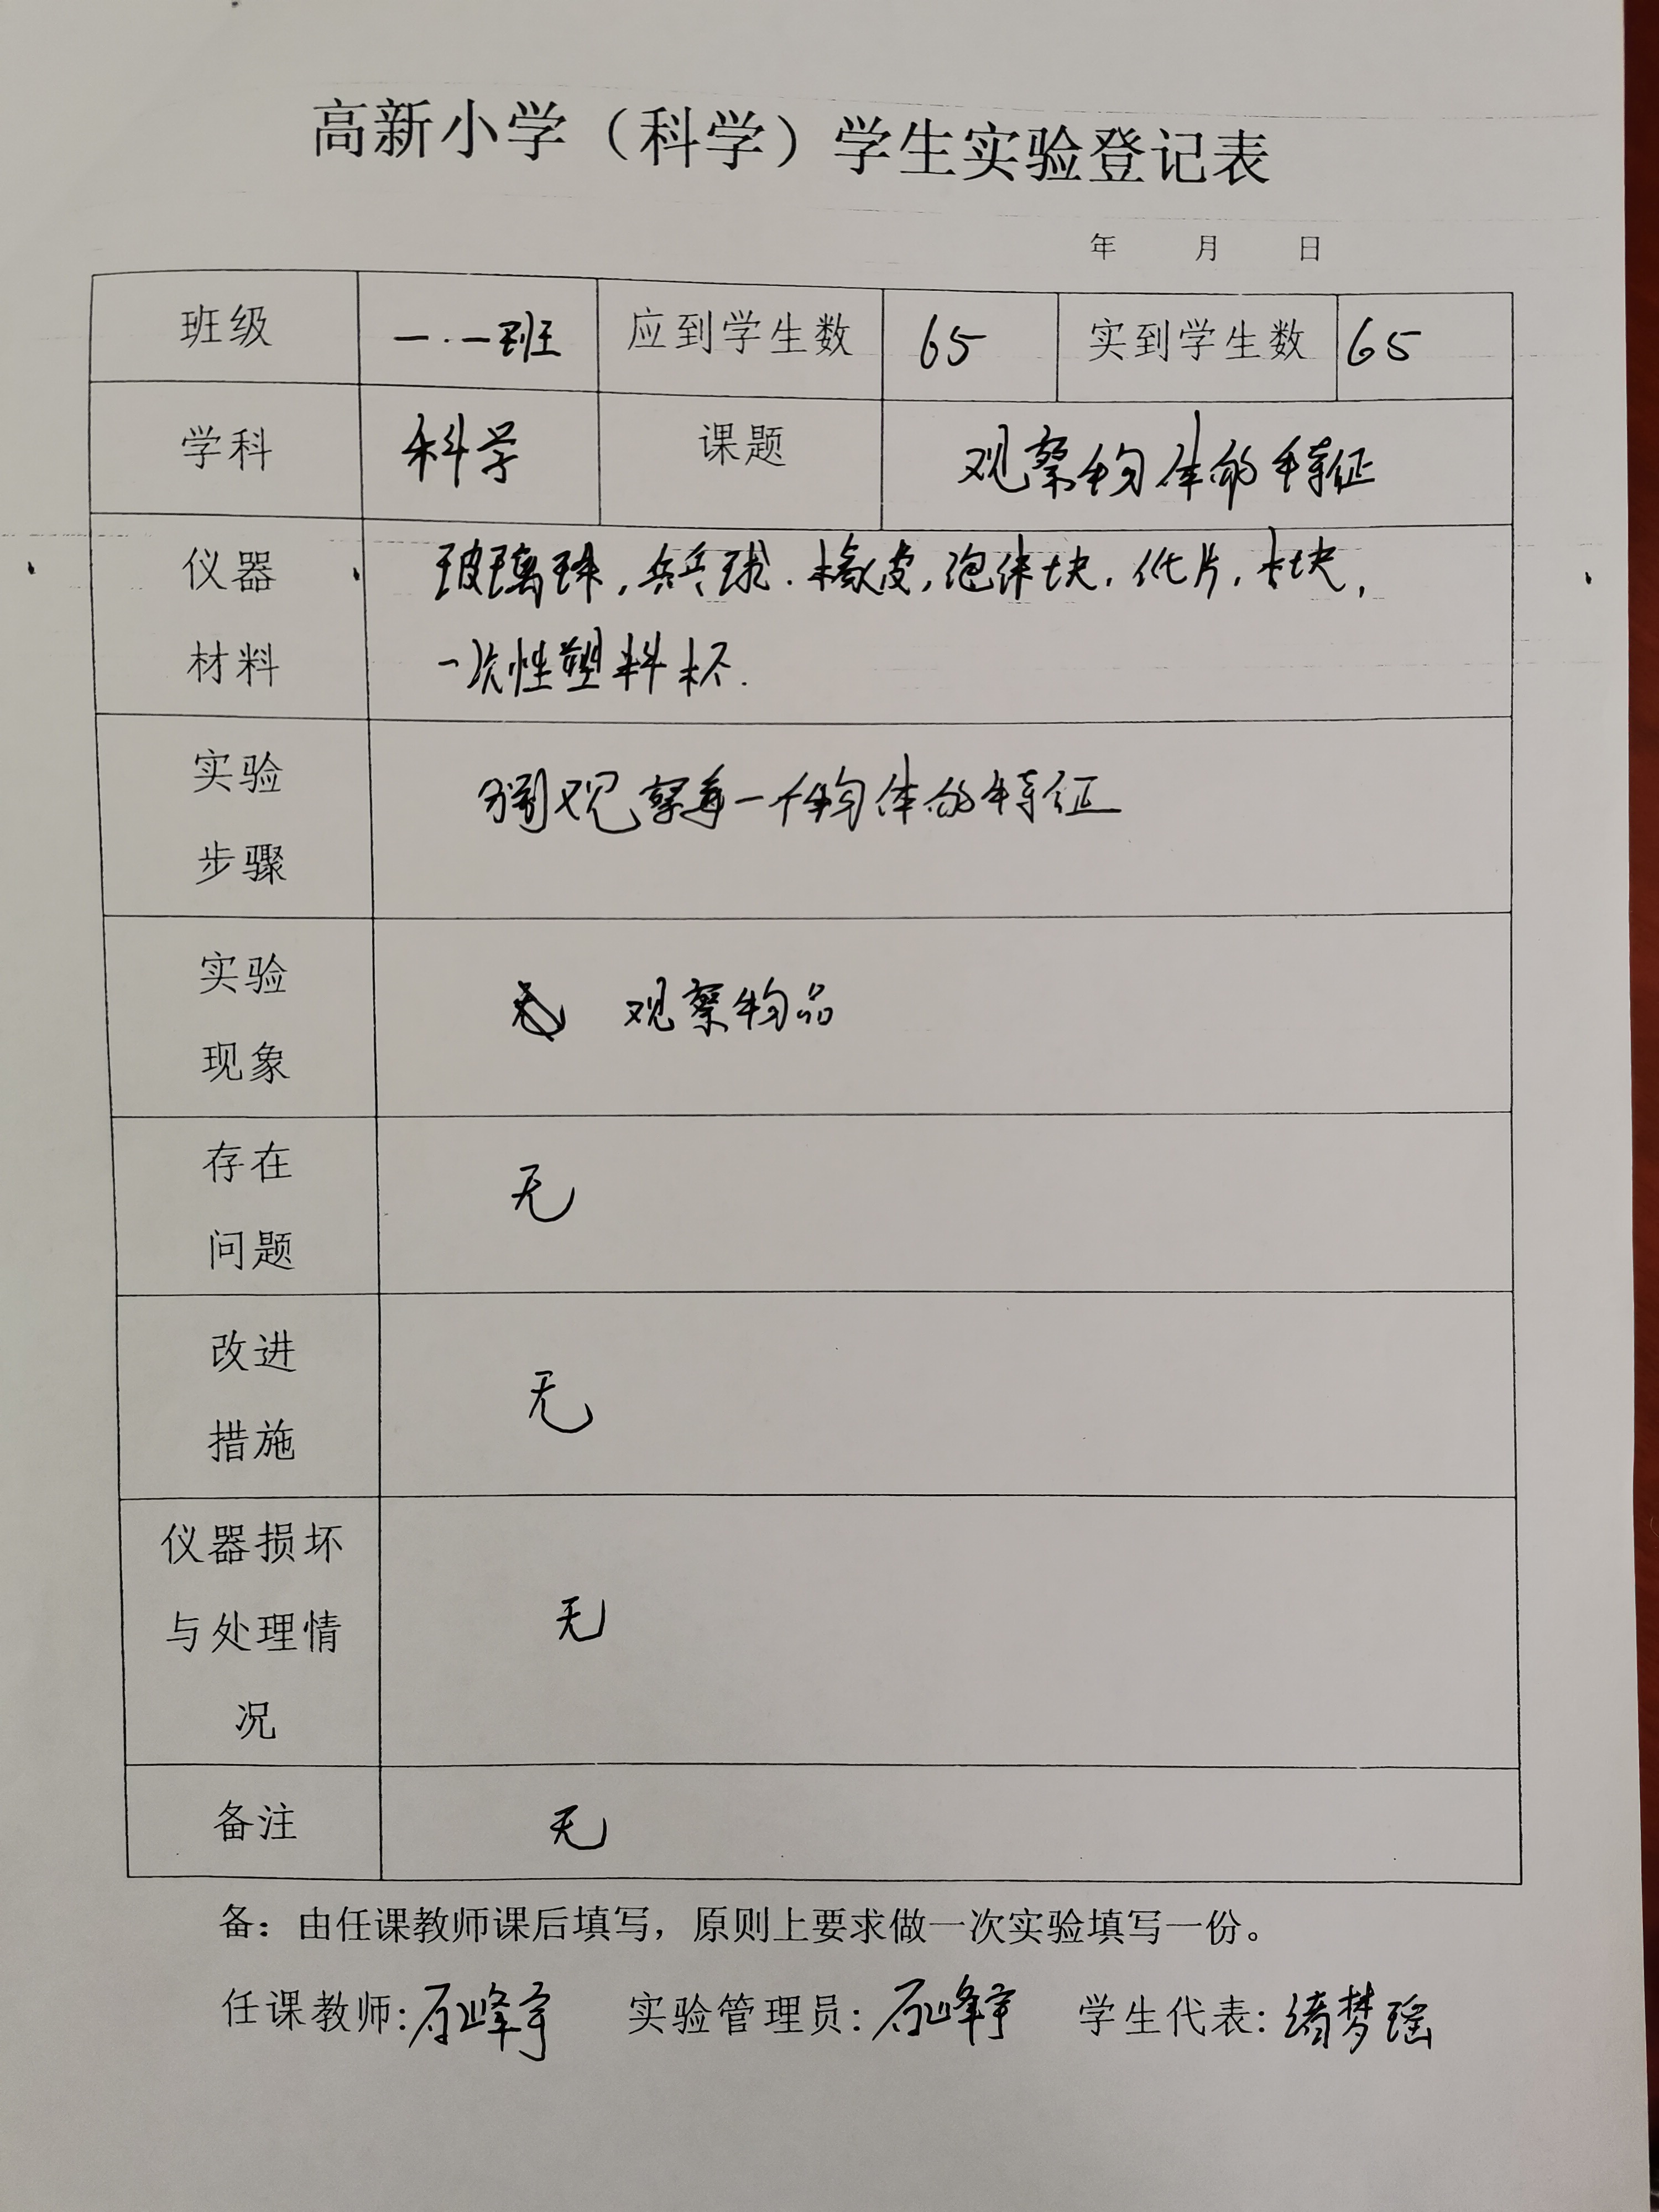 高新小学（科学）学生实验登记表
年 月 日
班级 一.一班 应到学生数 65 实到学生数 65
学科 科学 课题 观察物体的特征
仪器 玻璃球,乒乓球.橡皮,泡沫块.纸片.木块,
材料 一次性塑料杯.
实验 观察每一个物体的特征
步骤
实验 观察物品
现象
存在 无
问题
改进 无
措施
仪器损坏
与处理情 无
况
备注 无
备：由任课教师课后填写，原则上要求做一次实验填写一份。
任课教师: 实验管理员: 学生代表: 梦瑶